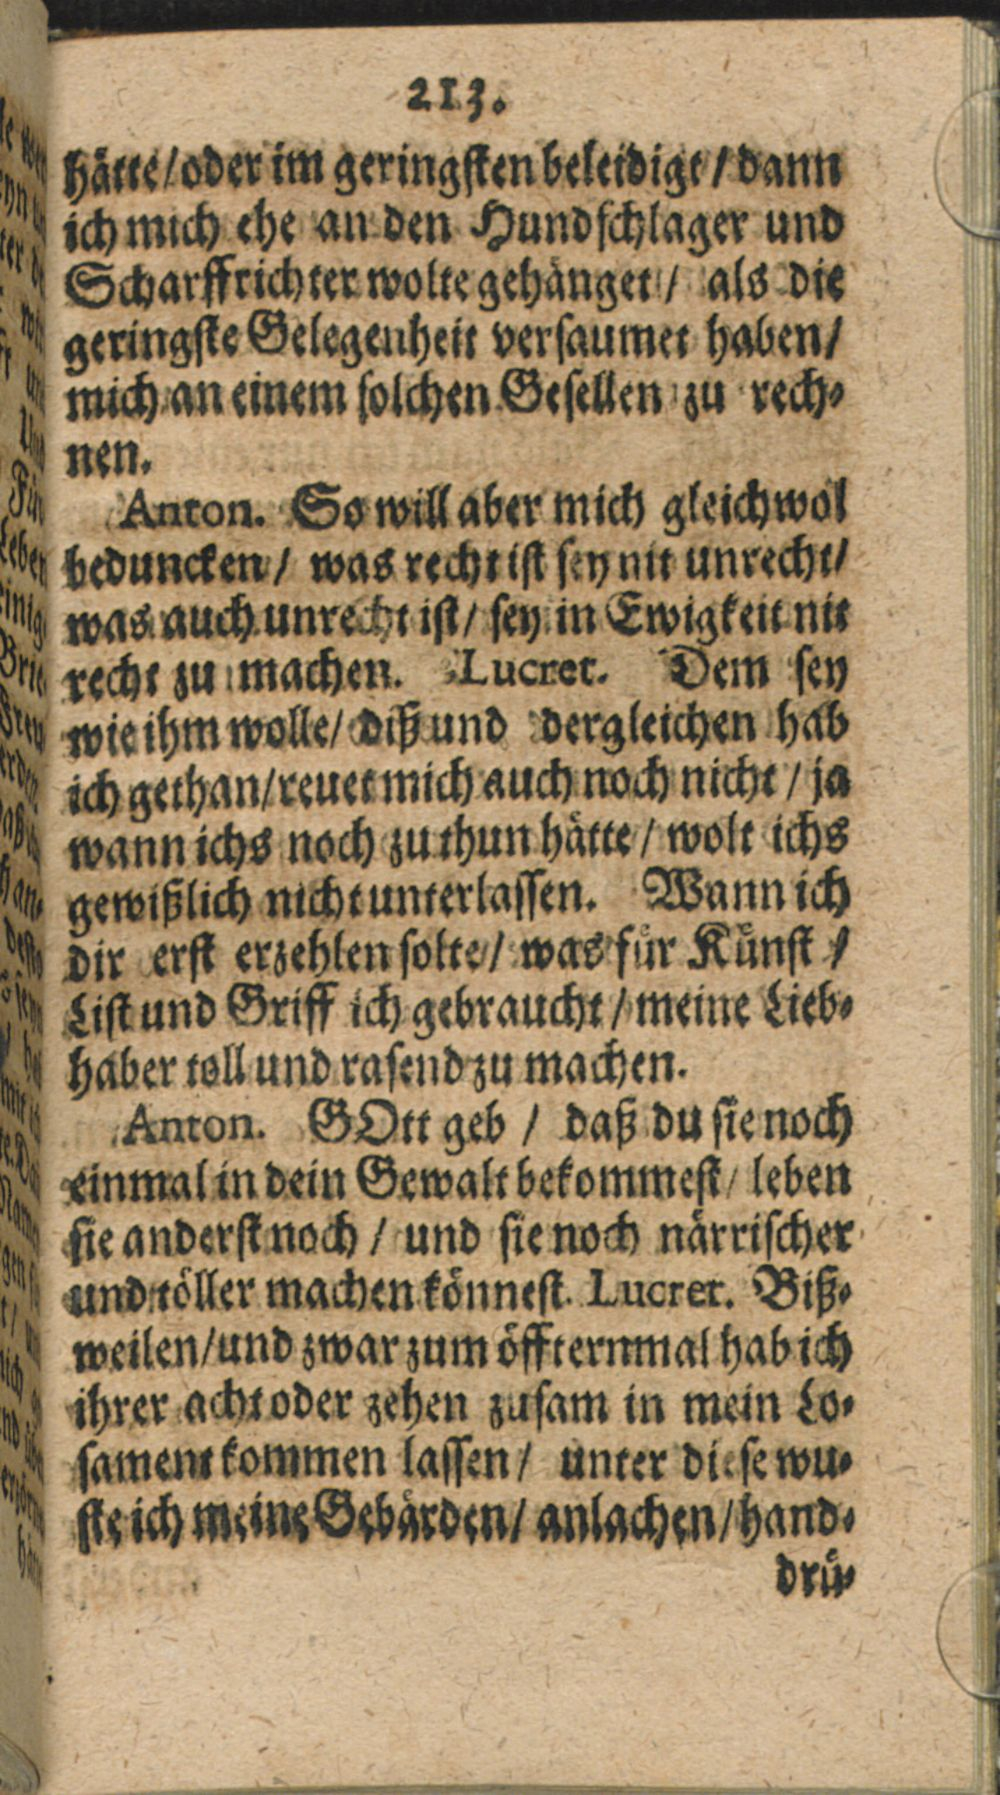 213.
hätte/oder im geringsten beleidigt/dann
ich mich ehe an den Hundschlager und
Scharffrichter wolte gehänget/ als die
geringste Gelegenheit versaumet haben/
mich an einem solchen Gesellen zu rech-
nen.
Anton. So will aber mich gleichwol
beduncken/ was recht ist sey nit unrecht/
was auch unrecht ist/ sey in Ewigkeit nit
recht zu machen. Lucret. Dem sey
wie ihm wolle/ diß und dergleichen hab
ich gethan/reuet mich auch noch nicht/ ja
wann ichs noch zu thun hätte/ wolt ichs
gewißlich nicht unterlassen. Wann ich
dir erst erzehlen solte/ was für Künst/
List und Griff ich gebraucht/meine Lieb-
haber toll und rasend zu machen.
Anton. GOtt geb/ daß du sie noch
einmal in dein Gewalt bekommest/ leben
sie anderst noch/ und sie noch närrischer
und töller machen könnest. Lucret. Biß-
weilen/und zwar zum öffternmal hab ich
ihrer acht oder zehen zusam in mein Lo-
sament kommen lassen/ unter diese wu-
ste ich meine Gebärden/ anlachen/hand-
drü-